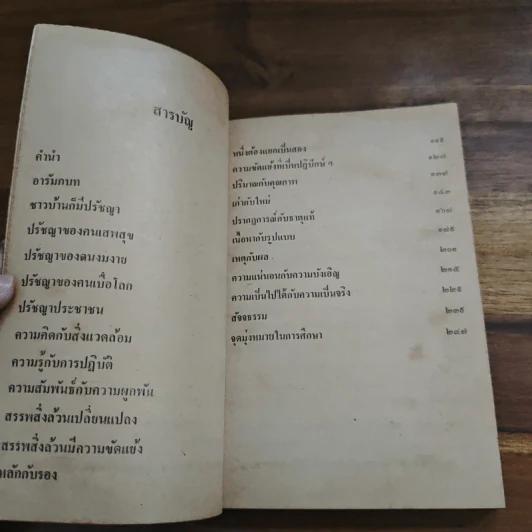 สารบัญ
คำนำ
อารัมภบท
ชาวบ้านก็มีปรัชญา
ปรัชญาของคนเสพสุข
ปรัชญาของคนงมงาย
ปรัชญาของคนเบื่อโลก
ปรัชญาประชาชน
ความคิดกับสิ่งแวดล้อม
ความรู้กับการปฏิบัติ
ความสัมพันธ์กับความผูกพัน
สรรพสิ่งล้วนเปลี่ยนแปลง
สรรพสิ่งล้วนมีความขัดแย้ง
หลักกับรอง
หนึ่งต้องแยกเป็นสอง
ความขัดแย้งที่เป็นปฏิปักษ์ ฯ
ปริมาณกับคุณภาพ ๑๓๗
เก่ากับใหม่ ๑๔๓
ปรากฏการณ์กับธาตุแท้ ๑๖๗
เนื้อหากับรูปแบบ ๑๗๕
เหตุกับผล ๒๐๑
ความแน่นอนกับความบังเอิญ ๒๑๕
ความเป็นไปได้กับความเป็นจริง ๒๒๕
สัจธรรม ๒๓๕
จุดมุ่งหมายในการศึกษา ๒๔๗